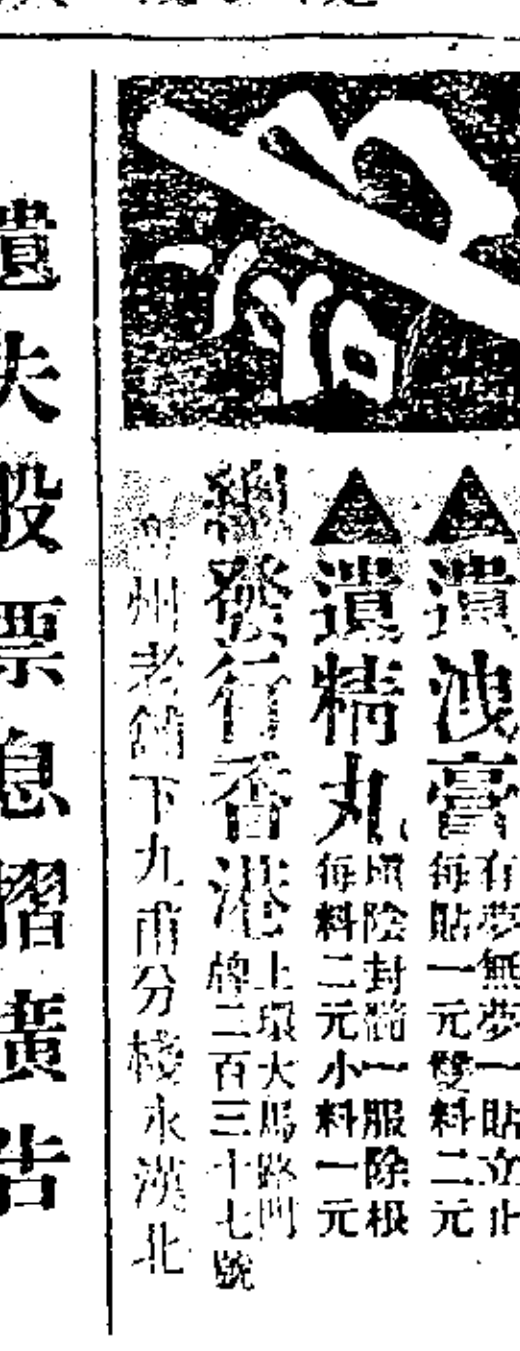 ▲遺洩膏 有夢無夢一貼立止 每貼一元雙料二元
▲遺精丸 填陰封髓一服除根 每料二元小料一元
總發行香港 上環大馬路門牌二百三十七號
州老舖下九甫分棧永漢北
遺失股票息摺廣告